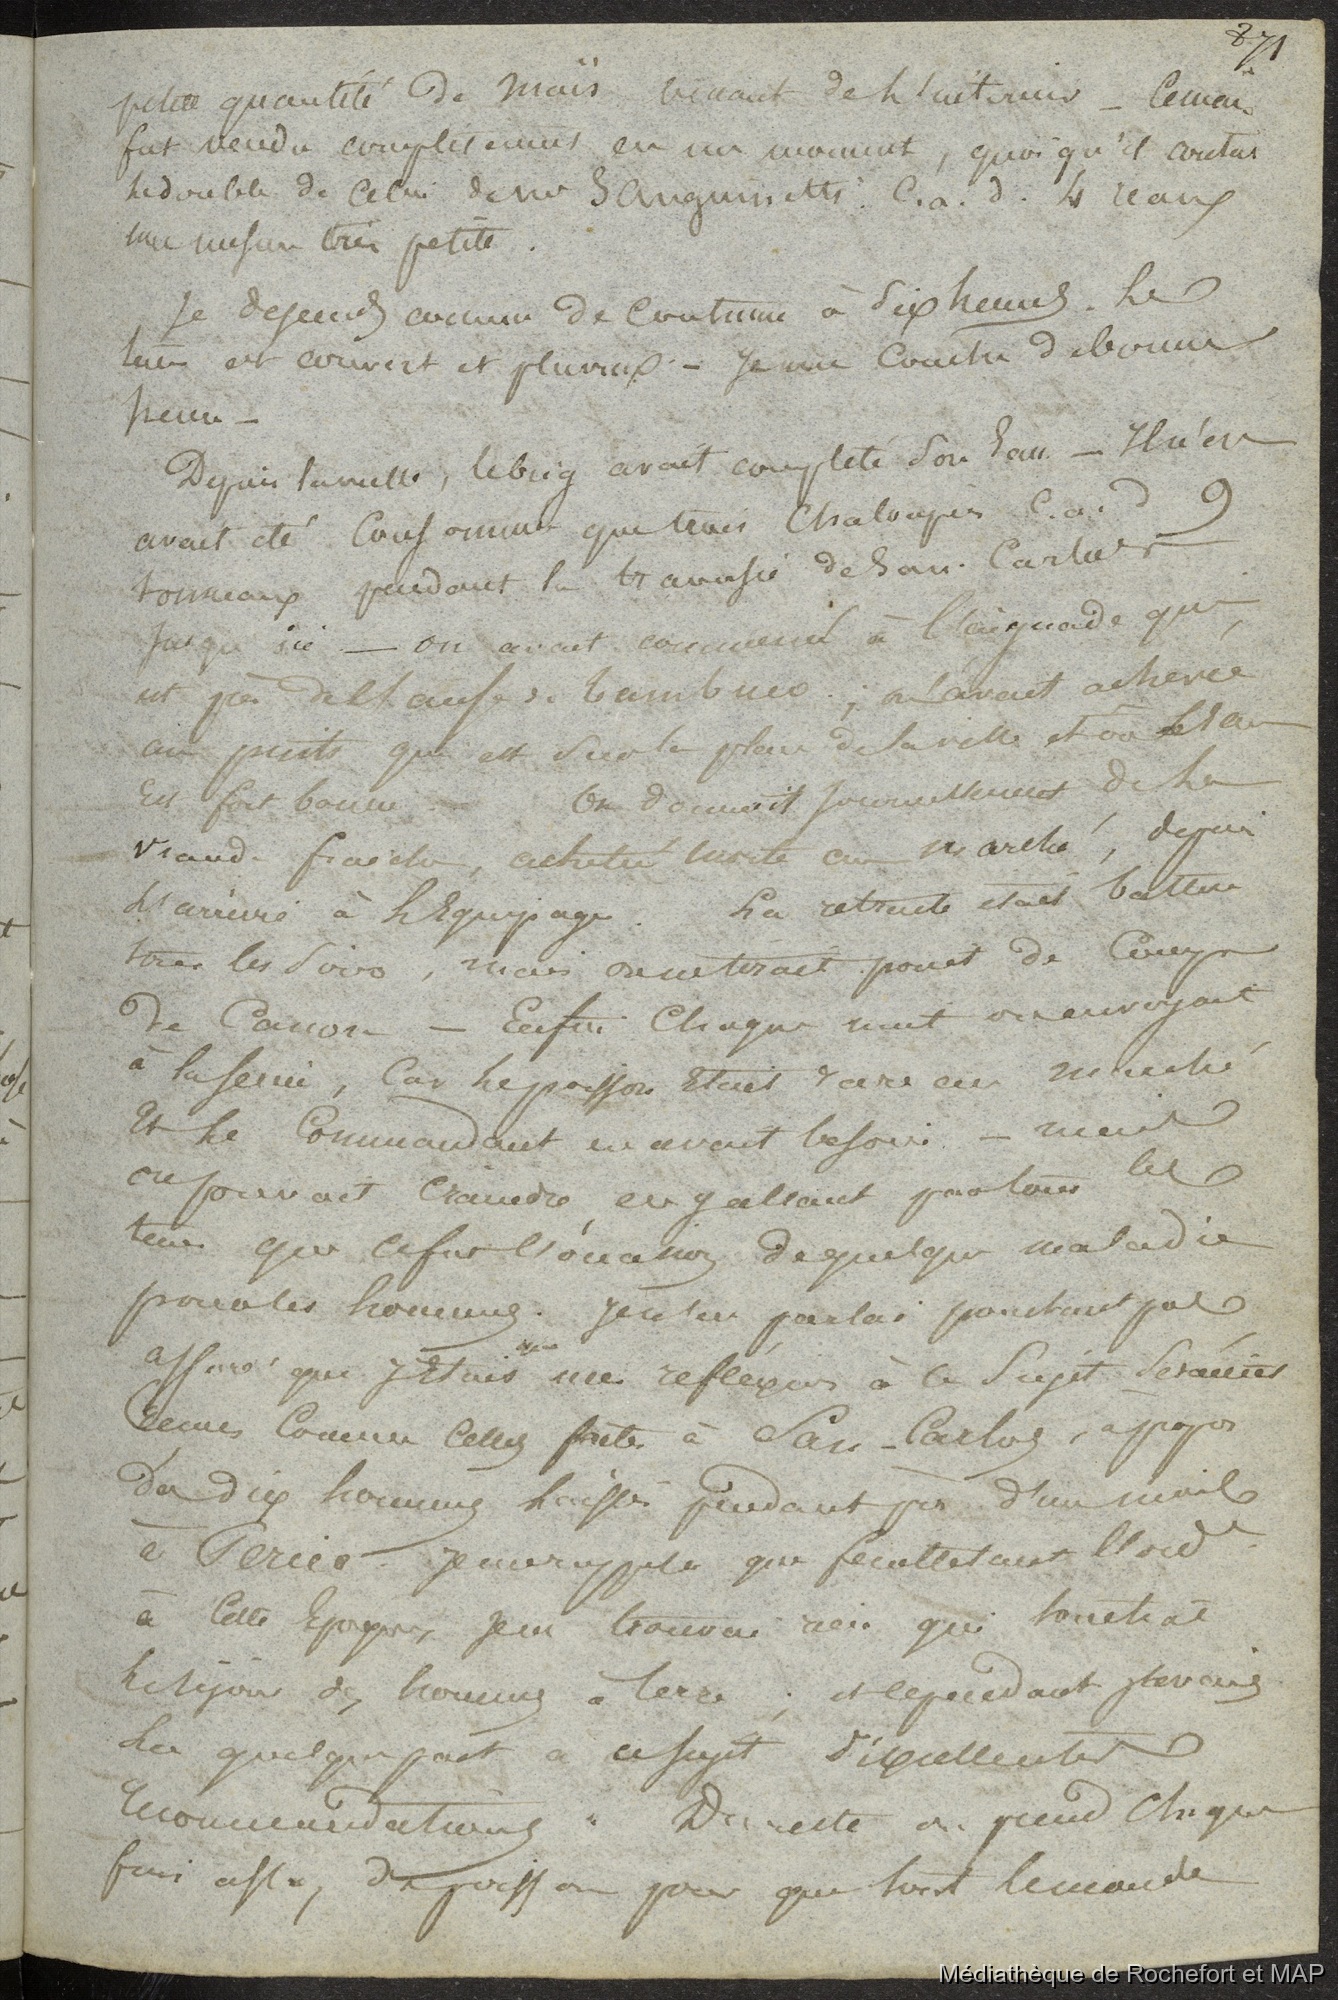 271
petite quantité de maïs venant de l'intérieur _ Ce maïs
fut vendu completement en un moment, quoiqu'il coutat
le double de celui de mr Sanguinetti. C. a. d. 4 reaux
une mesure très petite.
Je descends comme de coutume à dix heures. Le
tems est couvert et pluvieux - Je me couche de bonne
heure _
Depuis la veille, le brig avait complété son eau _ Il n'en
avait été consommé que trois chaloupes C. a. d 9
tonneaux pendant la traversée de San Carlos
jusqu'ici _ on avait commencé à l'aiguade qui
est près de l'anse de bambuco ; on l'avait achevée
au puits qui est sur le plan de la ville et où l'eau
est fort bonne _ On donnait journellement de la
viande fraiche, achetée morte au marché, depuis
l'arrivée à l'équipage. La retraite était battue
tous les soirs, mais on ne tirait point de coup
de canon _ Enfin chaque nuit on envoyait
à la seine, car le poisson était rare au marché
et le Commandant en avait besoin _ mais
on pouvait craindre en y allant par tous les
tems que ce fut l'occasion de quelque maladie
pour les hommes. Je ne lui parlai pourtant pas
assuré que j'étais que mes reflexions à ce sujet seraient
comme celles faites à San-Carlos, à propos
de dix hommes laissés pendant près d'un mois
à Perico _ Je me rappele que feuilletant l'ord
à cette époque, je ne trouvai rien qui touchat
le séjour des hommes à terre ; et cependant j'avais
lu quelque part à ce sujet d'excellentes
recommandations. Du reste on prend chaque
fois assez de poisson pour que tout le monde
Médiathèque de Rochefort et MAP